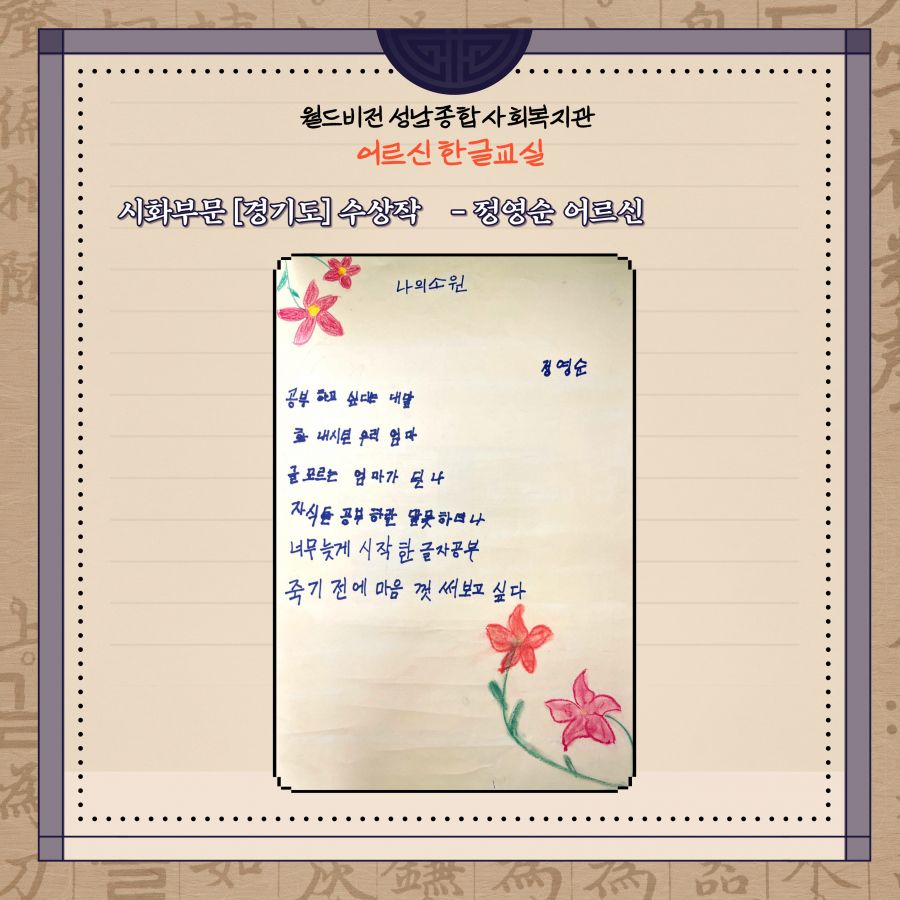 월드비전 성남종합사회복지관
어르신 한글교실
시화부문 [경기도] 수상작 - 정영순 어르신
나의소원
정영순
공부 하고 싶다는 내말
화 내시던 우리 엄마
글 모르는 엄마가 된 나
자식들 공부 하란 말못하더나
너무늦게 시작 한 글자공부
죽기 전에 마음 껏 써보고 싶다